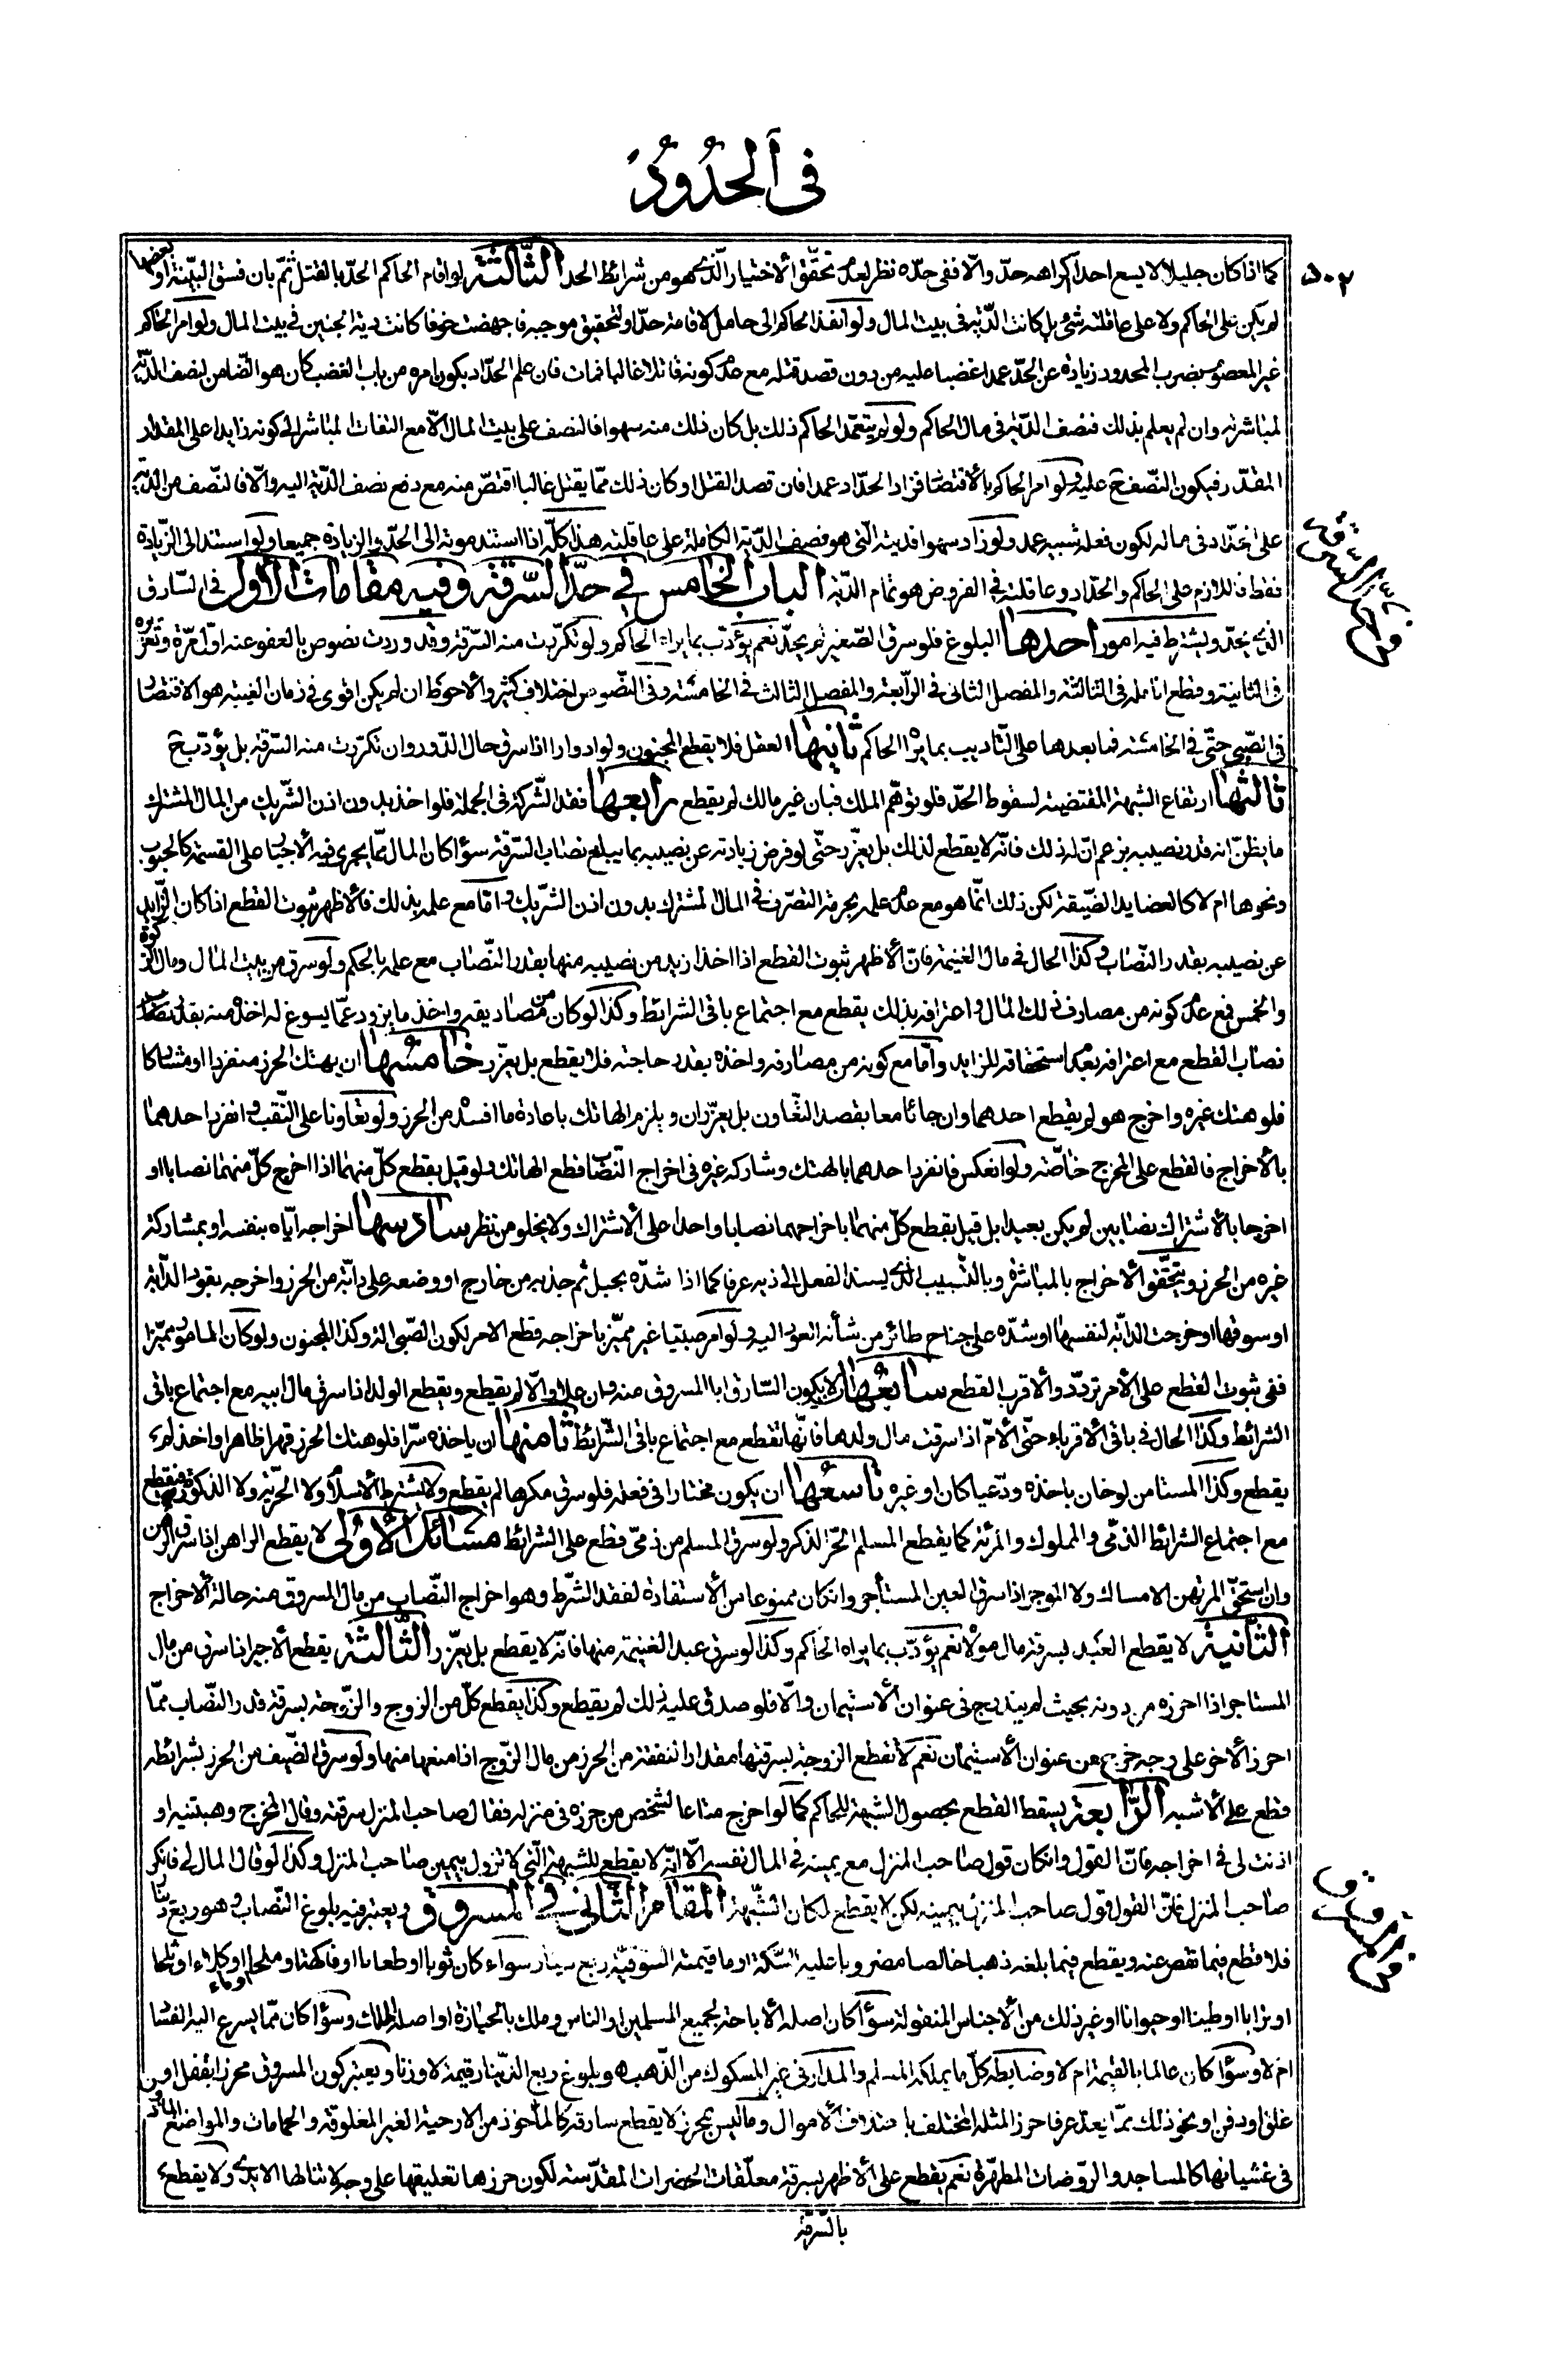 في الحدود
٥٠٢
كما اذا كان جليلا لا يسع احدا اكراهه حدّ والّا ففى حدّه نظر لعدم تحقّق الأختيار الّذى هو من شرائط الحد الثّالثة لو اقام الحاكم الحدّ بالقتل ثمّ بان فسق البيّنة او بعضها
لم يكن على الحاكم ولا على عاقلته شئ بل كانت الدّية فى بيت المال ولو انفذ الحاكم الى حامل لاقامة حدّ او لتحقيق موجبه فاجهضت خوفا كانت دية الجنين فى بيت المال ولو امر الحاكم
غير المعصوم بضرب المحدود زيادة عن الحدّ عمدا غضبا عليه من دون قصد قتله مع عدم كونه قاتلا غالبا فمات فان علم الحدّاد بكون امره من باب الغضب كان هو الضّامن لنصف الدّية
لمباشرته وان لم يعلم بذلك فنصف الدّية فى مال الحاكم ولو لم يتعمّد الحاكم ذلك بل كان ذلك منه سهوا فالنصف على بيت المال الّا مع التفات المباشر الى كونه زايدا على المقدار
المقدّر فيكون النّصف ح عليه ولو امر الحاكم بالأقتصار فزاد الحدّاد عمدا فان قصد القتل او كان ذلك ممّا يقتل غالبا اقتصّ منه مع دفع نصف الدّية اليه والّا فالنّصف من الدّية
على الحدّاد فى ماله لكون فعله شبيه عمد ولو زاد سهوا فديته الّتى هو نصف الدّية الكاملة على عاقلته هذا كلّه اذا استند موته الى الحدّ والزيادة جميعا ولو استند الى الزّيادة
فقط فاللازم على الحاكم والحدّاد وعاقلته فى الفروض هو تمام الدّية الباب الخامس في حدّ السّرقة وفيه مقامات الأوّل فى السّارق
الّذى يحدّ ويشترط فيه امور احدها البلوغ فلو سرق الصّغير لم يحدّ نعم يؤدّب بما يراه الحاكم ولو تكرّرت منه السّرقة وقد وردت نصوص بالعفو عنه اوّل مرّة وتعزيره
فى الثانية وقطع انامله فى الثالثة والمفصل الثانى فى الرّابعة والمفصل الثالث فى الخامسة وفى النّصوص اختلاف كثير والأحوط ان لم يكن اقوى فى زمان الغيبة هو الاقتصار
فى الصّبى حتّى فى الخامسة فما بعدها على التّاديب بما يراه الحاكم ثانيها العقل فلا يقطع المجنون ولو ادوارا اذا سرق حال الدّور وان تكرّرت منه السّرقة بل يؤدّب ح
ثالثها ارتفاع الشبهة المقتضية لسقوط الحدّ فلو توهّم الملك فبان غير مالك لم يقطع رابعها فقد الشّركة فى الجملة فلو اخذ بدون اذن الشّريك من المال المشترك
ما يظنّ انه قدر نصيبه بزعم انّ له ذلك فانّه لا يقطع لذلك بل يعزّر حتّى لو فرض زيادته عن نصيبه بما يبلغ نصاب السّرقة سواء كان المال ممّا يجرى فيه الأجبار على القسمة كالحبوب
ونحوها ام لا كالعضايد الضّيقة لكن ذلك انّما هو مع عدم علمه بحرمة التصرّف فى المال المشترك بدون اذن الشّريك وامّا مع علمه بذلك فالأظهر ثبوت القطع اذا كان الزّايد
عن نصيبه بقدر النّصاب وكذا الحال فى مال الغنيمة فانّ الأظهر ثبوت القطع اذا اخذ ازيد من نصيبه منها بقدر النّصاب مع علمه بالحكم ولو سرق من بيت المال ومال الزكوة
والخمس فمع عدم كونه من مصارف ذلك المال واعترافه بذلك يقطع مع اجتماع باقى الشرائط وكذا لو كان من مصاديقه واخذ ما يزود عمّا يسوغ له اخذه منه بقدر نصاب
نصاب القطع مع اعترافه بعدم استحقاقه للزايد وامّا مع كونه من مصارفه واخذه بقدر حاجته فلا يقطع بل يعزّر خامسها ان يهتك الحرز منفردا او مشاركا
فلو هتك غيره واخرج هو لم يقطع احدهما وان جائا معا بقصد التّعاون بل يعزّران ويلزم الهاتك باعادة ما افسد من الحرز ولو تعاونا على النّقب وانفرد احدهما
بالأخراج فالقطع على المخرج خاصّة ولو انعكس فانفرد احدهما بالهتك وشاركه غيره فى اخراج النّصاب قطع الهاتك ولو قيل بقطع كلّ منهما اذا اخرج كلّ منهما نصابا او
اخرجا بالأشتراك نصابين لم يكن بعيدا بل قيل بقطع كلّ منهما باخراجهما نصابا واحدا على الأشتراك ولا يخلو من نظر سادسها اخراجه ايّاه بنفسه او بمشاركة
غيره من الحرز ويتحقّق الأخراج بالمباشرة وبالتّسبيب الّذى يسند الفعل الى ذيه عرفا كما اذا شدّه بحبل ثم جذبه من خارج او وضعه على دابّة من الحرز واخرجه بقود الدّابة
او سوقها او خرجت الدابّة لنفسها او شدّه على جناح طائر من شأنه العود اليه ولو امر صبيّا غير مميّز باخراجه قطع الامر لكون الصّبى الة وكذا المجنون ولو كان المامور مميّزا
ففى ثبوت القطع على الأمر تردّد والأقرب القطع سابعها ان لا يكون السّارق ابا المسروق منه وان علا والّا لم يقطع ويقطع الولد اذا سرق مال ابيه مع اجتماع باقى
الشرائط وكذا الحال فى باقى الأقرباء حتّى الأمّ اذا سرقت مال ولدها فانّها تقطع مع اجتماع باقى الشّرائط ثامنها ان ياخذه سرّا فلو هتك الحرز قهرا ظاهرا واخذ لم
يقطع وكذا المستامن لو خان باخذه ودعيا كان او غيره تاسعها ان يكون مختارا فى فعله فلو سرق مكرها لم يقطع ولا يشترط الأسلام ولا الحرّية ولا الذكورة فيقطع
مع اجتماع الشرائط الذمّى والمملوك والمرئة كما يقطع المسلم الحرّ الذكر ولو سرق المسلم من ذمّى قطع على الشرائط مسائل الأولى لا يقطع الراهن اذا سرق الرّهن
وان استحقّ المرتهن الامساك ولا الموجر اذا سرق العين المستأجر وان كان ممنوعا من الأستفادة لفقد الشّرط وهو اخراج النّصاب من مال المسروق منه حالة الأخراج
الثّانية لا يقطع العبد بسرقة مال مولاه نعم يؤدّب بما يراه الحاكم وكذا لو سرق عبد الغنيمة منها فانّه لا يقطع بل يعزّر الثّالثة يقطع الأجير اذا سرق من مال
المستاجر اذا احرزه من دونه بحيث لم يندرج فى عنوان الأستيمان والّا فلو صدق عليه ذلك لم يقطع وكذا يقطع كلّ من الزوج والزّوجة بسرقة قدر النّصاب ممّا
احرز الأخر على وجه خرج عن عنوان الأستيمان نعم لا تقطع الزوجة بسرقتها مقدار النفقة من الحرز من مال الزّوج اذا منعها منها ولو سرق الضّيف من الحرز بشرائطه
قطع على الأشبه الرّابعة يسقط القطع بحصول الشبهة للحاكم كما لو اخرج متاعا لشخص من حرزه فى منزله فقال صاحب المنزل سرقته وقال المخرج وهبتنيه او
اذنت لى فى اخراجه فانّ القول وان كان قول صاحب المنزل مع يمينه فى المال نفسه الّا انّه لا يقطع للشبهة الّتى لا تزول بيمين صاحب المنزل وكذا لو قال المال لى فانكر
صاحب المنزل فانّ القول قول صاحب المنزل بيمينه لكن لا يقطع لمكان الشّبهة المقام الثّاني في المسروق ويعتبر فيه بلوغ النّصاب وهو ربع دينار
فلا قطع فيما نقص عنه ويقطع فيما بلغه ذهبا خالصا مضروبا عليه السّكّة او ما قيمته السّوقيّة ربع دينار سواء كان ثوبا او طعاما او فاكهة او ملحا او كلاء او ثلجا او ماء
او ترابا او طينا او حيوانا او غير ذلك من الأجناس المنقولة سواء كان اصله الأباحة لجميع المسلمين او الناس وملك بالحيازة او اصله الملك وسواء كان ممّا يسرع اليه الفساد
ام لا وسواء كان عالما بالقيمة ام لا وضابطه كلّ ما يملكه المسلم والمدار فى غير المسكوك من الذّهب هو بلوغ ربع الدّينار قيمة لا وزنا ويعتبر كون المسروق محرزا بقفل او
غلق او دفن او نحو ذلك ممّا يعدّ عرفا حرز المثله المختلف باختلاف الأموال وما ليس بمحرز لا يقطع سارقه كالمأخوذ من الارحية الغير المغلوقة والحمامات والمواضع المأذون
فى غشيانها كالمساجد والرّوضات المطهّرة نعم يقطع على الأظهر بسرقة معلّقات الحضرات المقدّسة لكون حرزها تعليقها على وجه لا تنالها الايدى ولا يقطع
بالسّرقة
فى حدّ السّرقة
فى المسروق